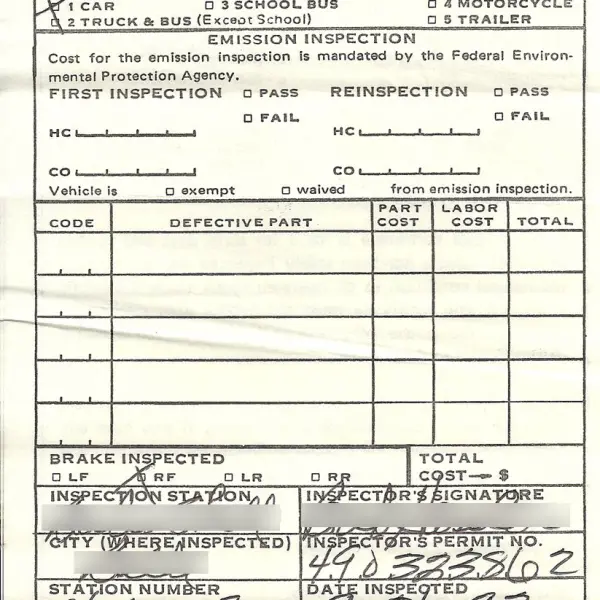 □ 1 CAR □ 3 SCHOOL BUS □ 4 MOTORCYCLE
□ 2 TRUCK & BUS (Except School) □ 5 TRAILER
EMISSION INSPECTION
Cost for the emission inspection is mandated by the Federal Environ-
mental Protection Agency.
FIRST INSPECTION □ PASS REINSPECTION □ PASS
□ FAIL □ FAIL
HC HC
CO CO
Vehicle is □ exempt □ waived from emission inspection.
CODE DEFECTIVE PART PART COST LABOR COST TOTAL
BRAKE INSPECTED TOTAL
□ LF □ RF □ LR □ RR COST→ $
INSPECTION STATION INSPECTOR'S SIGNATURE
CITY (WHERE INSPECTED) INSPECTOR'S PERMIT NO.
490323862
STATION NUMBER DATE INSPECTED